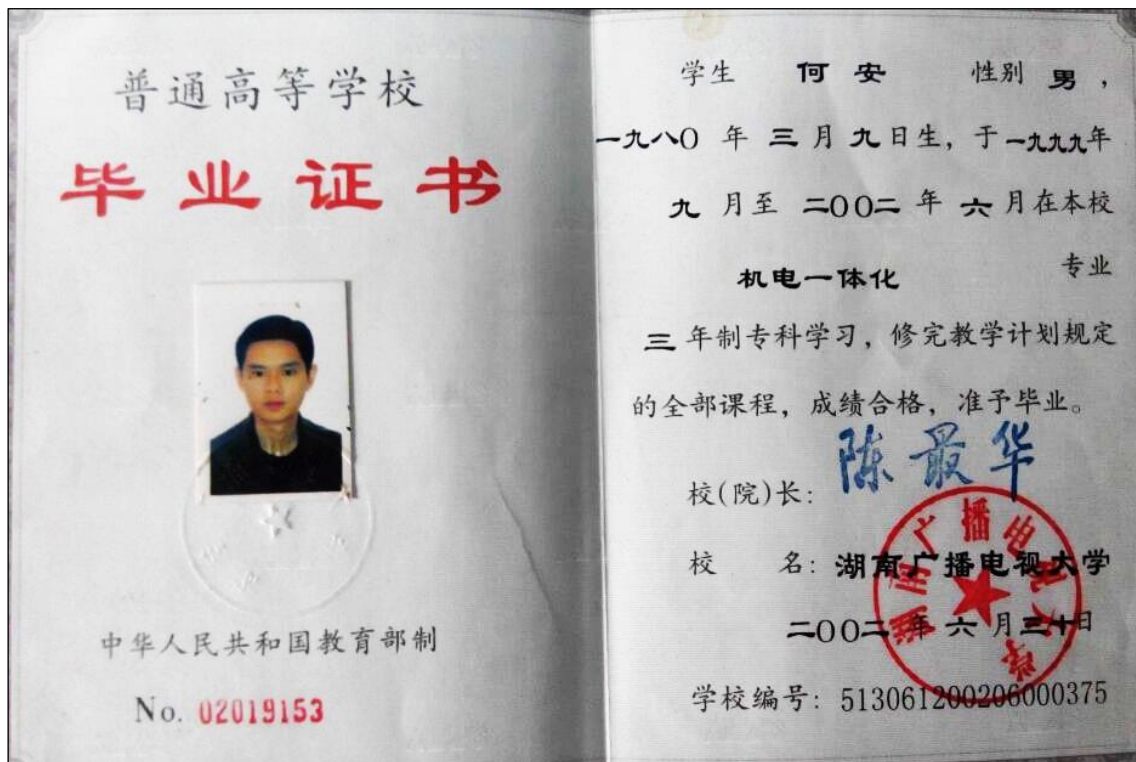 普通高等学校
毕业证书
中华人民共和国教育部制
No. 02019153
学生 何安 性别 男，
一九八〇 年 三 月 九 日生，于 一九九九年
九 月至 二〇〇二 年 六 月在本校
机电一体化 专业
三 年制专科学习，修完教学计划规定
的全部课程，成绩合格，准予毕业。
校(院)长：陈最华
校 名：湖南广播电视大学
二〇〇二 年 六 月三十日
学校编号：513061200206000375
湖南广播电视大学